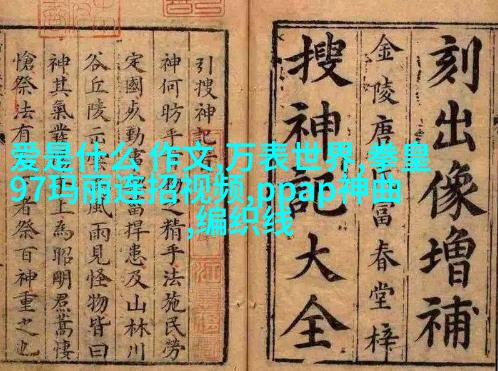 刻出像增補
金陵唐富春堂梓
搜神記大全
引搜神記
神何昉乎之精手法施民勞
定國勤當捍患及山林川
谷丘陵風雨見怪物皆曰
神其氣上為昭明焄蒿悽
愴祭法有者祭百神重之也
爱是什么 作文,万表世界,拳皇
97玛丽连招视频,ppap神曲
,编织线